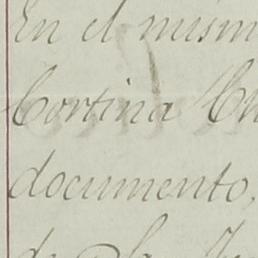 En el mism
Cortina
documento,
de